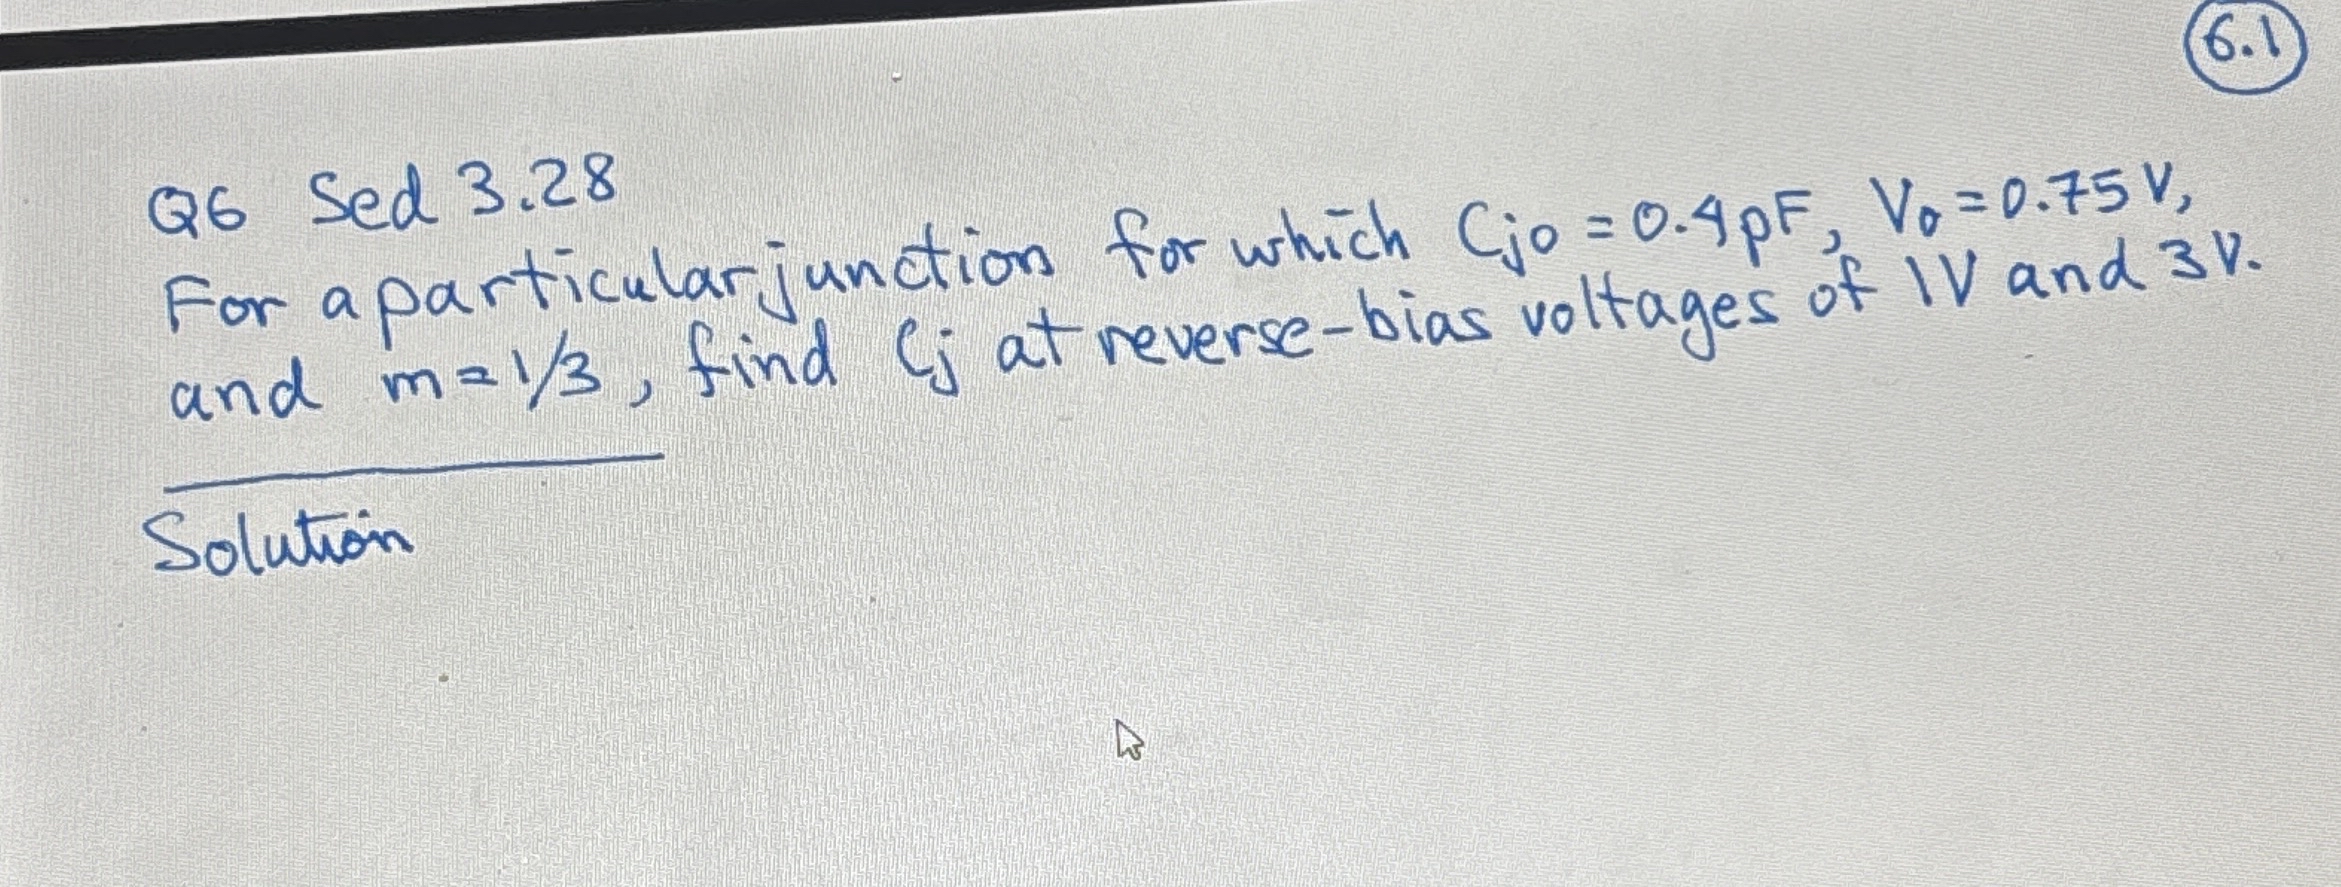 6.1
Q6 Sed 3.28
For a particular junction for which Cjo = 0.4pF, Vo = 0.75 V,
and m = 1/3, find Cj at reverse-bias voltages of 1V and 3V.
Solution